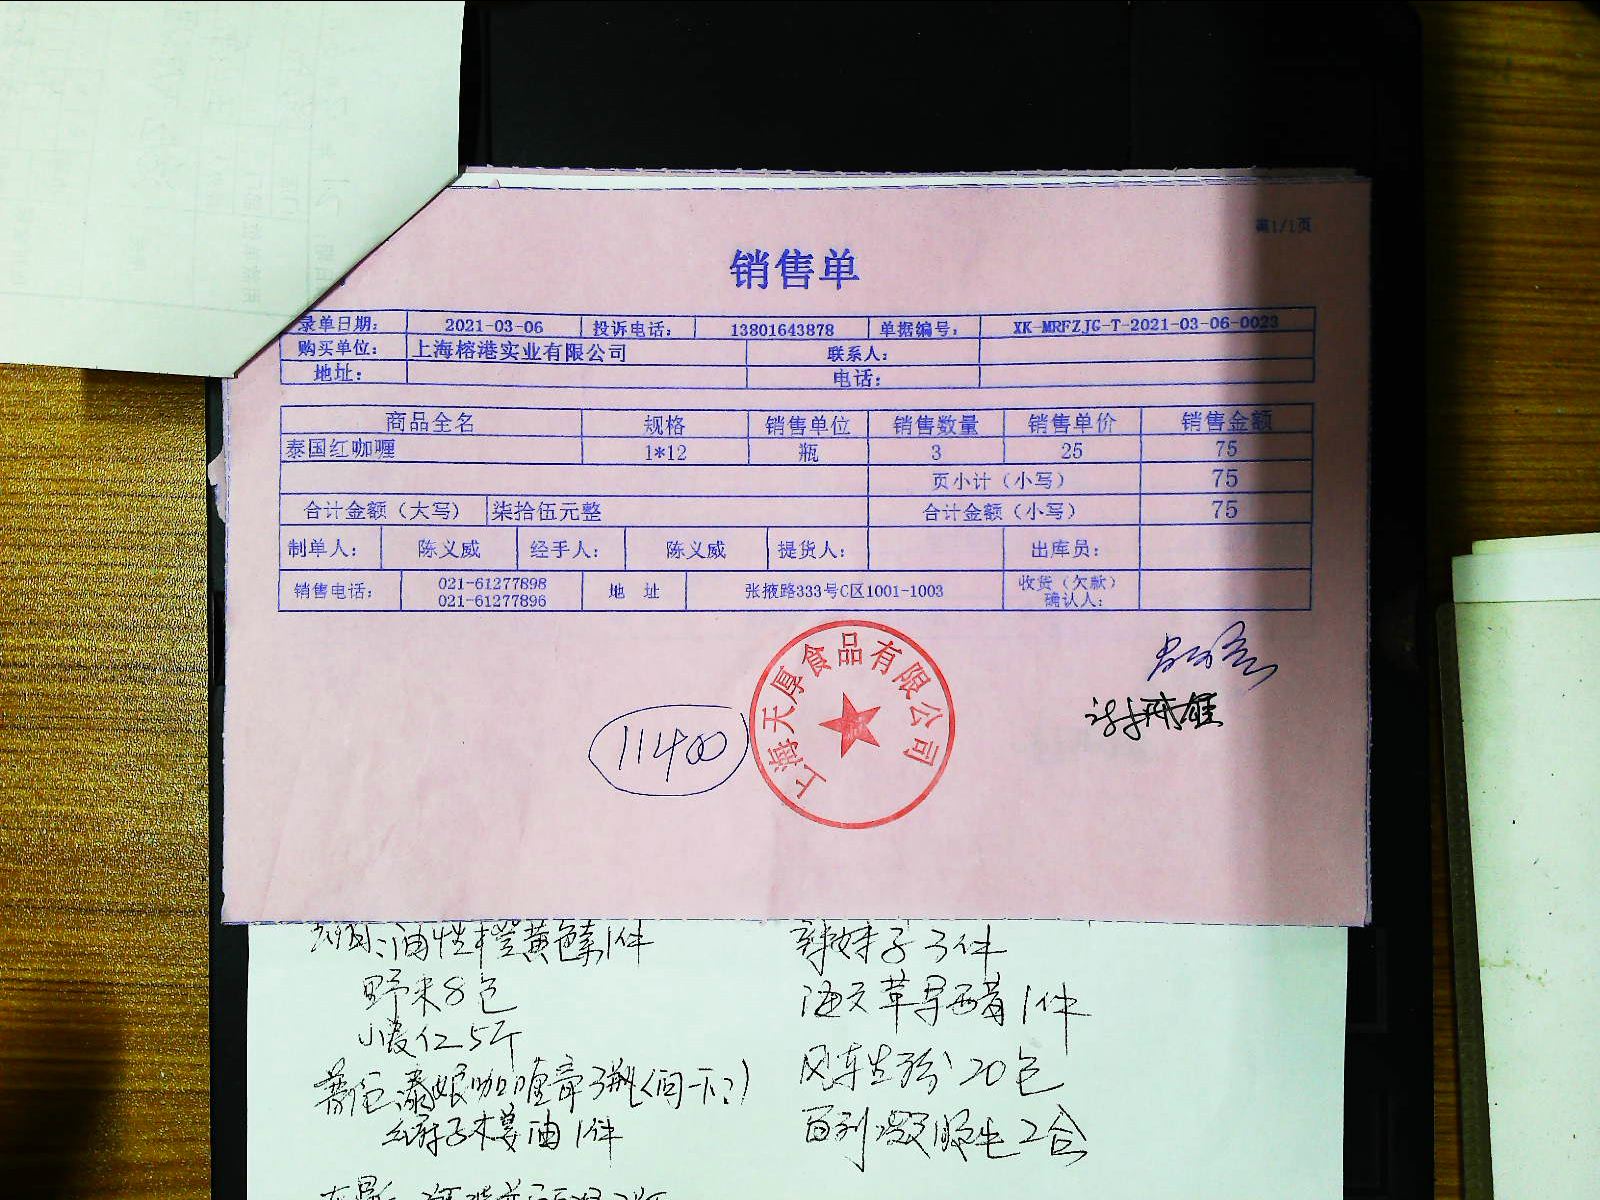 第1/1页
销售单
录单日期： 2021-03-06 投诉电话： 13801643878 单据编号： XK-MRFZJG-T-2021-03-06-0023
购买单位： 上海榕港实业有限公司 联系人：
地址： 电话：
商品全名 规格 销售单位 销售数量 销售单价 销售金额
泰国红咖喱 1*12 瓶 3 25 75
页小计（小写） 75
合计金额（大写） 柒拾伍元整 合计金额（小写） 75
制单人： 陈义威 经手人： 陈义威 提货人： 出库员：
销售电话： 021-61277898 021-61277896 地 址 张掖路333号C区1001-1003 收货（欠款）确认人：
上海天厚食品有限公司
11400
油性橙黄色素1件
辣妹子3件
野米8包
海天苹果醋1件
小麦仁5斤
风车生粉20包
咖喱膏3瓶(问一下?)
2合
油1件